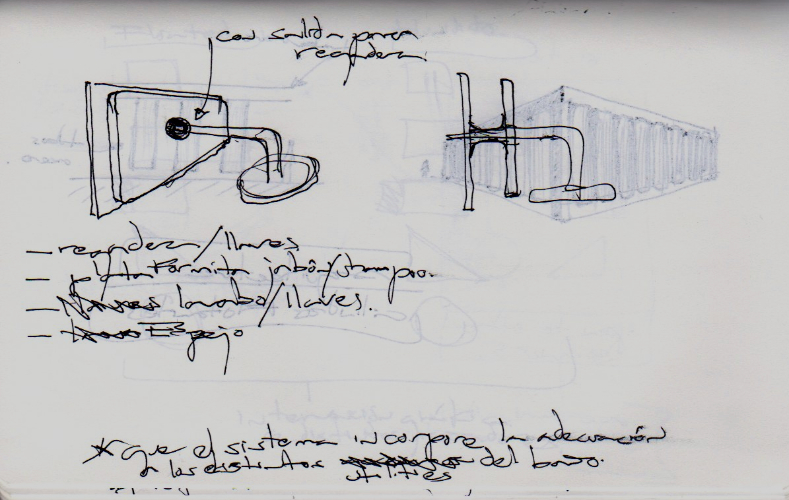 con salida para
regadera.
— regadera/llaves
— plataformita jabón/shampo.
— lavabo/llaves.
— Espejo
* que el sistema incorpore la adecuación
a los distintos utilities del baño.